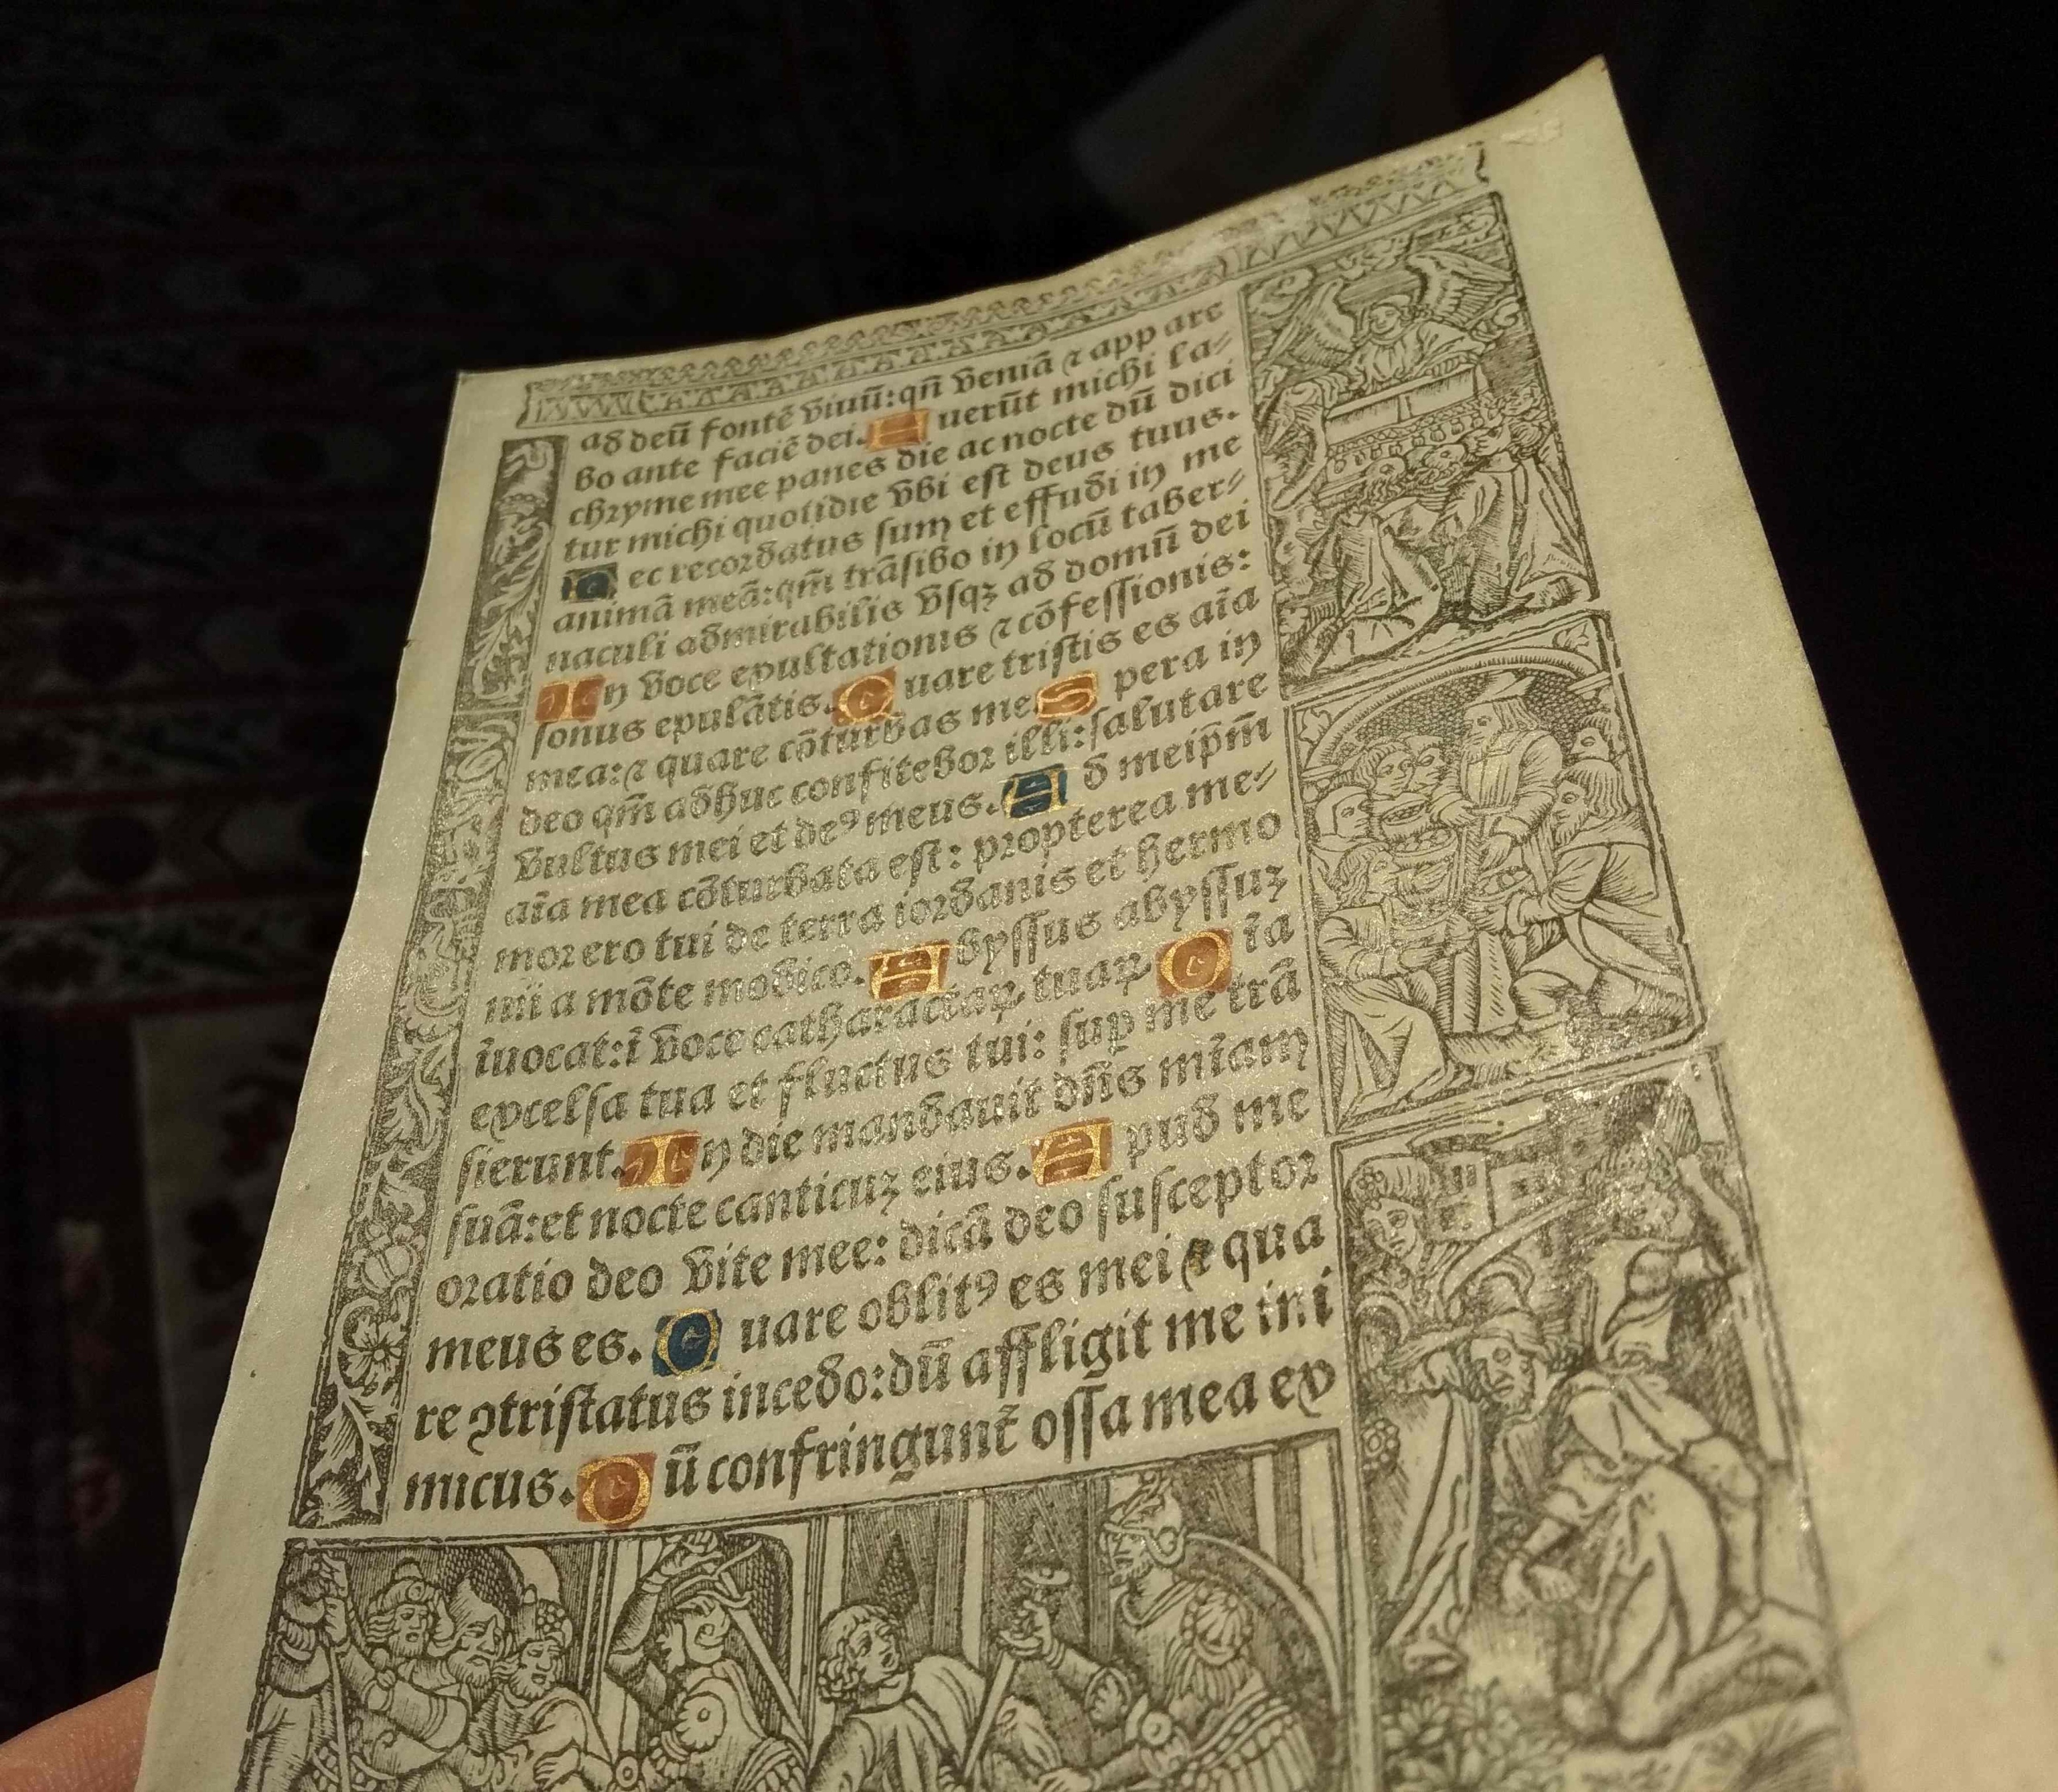 ad deū fontē viuū:qñ veniā ⁊ appare
bo ante faciē dei. Fuerūt michi la⸗
chryme mee panes die ac nocte dū dici
tur michi quotidie vbi est deus tuus.
Hec recordatus sum et effudi in me
animā meā:qm̄ trāsibo in locū taber⸗
naculi admirabilis vsqꝫ ad domū dei
In voce exultationis ⁊ cōfessionis:
sonus epulātis. Quare tristis es aīa
mea:⁊ quare cōturbas me Spera in
deo qm̄ adhuc confitebor illi:salutare
vultus mei et deꝰ meus. Ad meipm̄
aīa mea cōturbata est: propterea me⸗
mor ero tui de terra iordanis et hermo
nii a mōte modico. Abyssus abyssuꝫ
īuocat:ī voce catharactaꝝ tuaꝝ Oīa
excelsa tua et fluctus tui: sup me trā
sierunt. In die mandauit dn̄s mīam
suā:et nocte canticuꝫ eius. Apud me
oratio deo vite mee: dicā deo susceptor
meus es. Quare oblitꝰ es mei ⁊ qua
re ꝯtristatus incedo:dū affligit me ini
micus. Dū confringunt̄ ossa mea ex